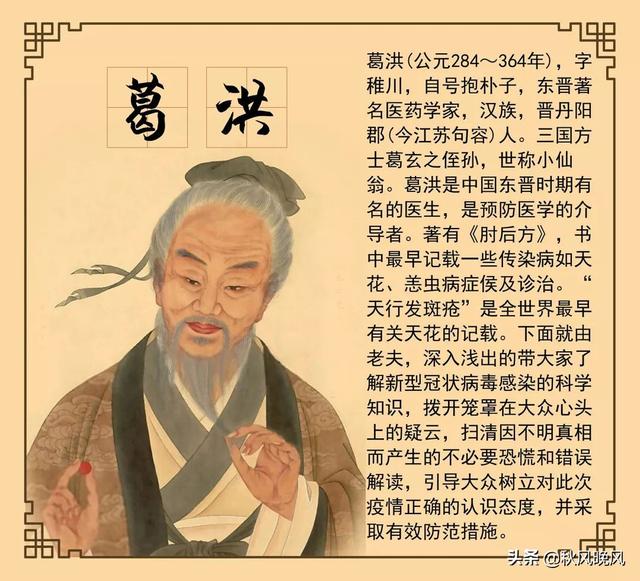 葛洪
葛洪(公元284～364年)，字
稚川，自号抱朴子，东晋著
名医药学家，汉族，晋丹阳
郡(今江苏句容)人。三国方
士葛玄之侄孙，世称小仙
翁。葛洪是中国东晋时期有
名的医生，是预防医学的介
导者。著有《肘后方》，书
中最早记载一些传染病如天
花、恙虫病症侯及诊治。“
天行发斑疮”是全世界最早
有关天花的记载。下面就由
老夫，深入浅出的带大家了
解新型冠状病毒感染的科学
知识，拨开笼罩在大众心头
上的疑云，扫清因不明真相
而产生的不必要恐慌和错误
解读，引导大众树立对此次
疫情正确的认识态度，并采
取有效防范措施。
头条 @秋风晚风